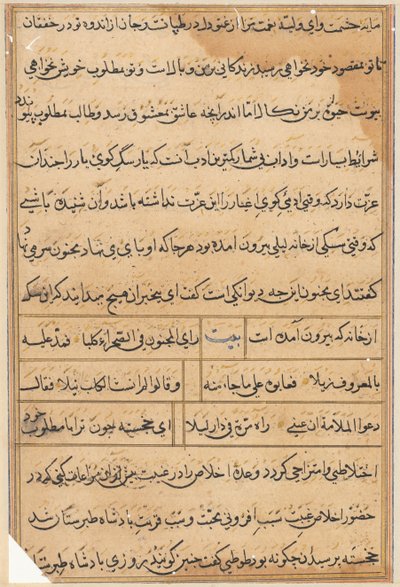 مایهٔ حشمت وای ولیهٔ نعمت مرا از غم تو دل در طپانت و جان از اندوه تو در خفقان
تا تو بمقصود خود نخواهی رسید زندگانی بر من وبالست و تو مطلوب خویش نخواهی
پیوست خون بر من نکال اما اندر آنچه عاشق بمعشوق رسد و طالب بمطلوب پیوندد
شرایط بسیار است و آداب بی شمار کمترین ادب آنست که یار سک کوی یار را چندان
عزت دارد که وقتی آدمی کوی اغیار را این عزت نداشته باشد و آن شنیده باشی
که وقتی سکی از خانه لیلی بیرون آمده بود هر جا که او پای می نهاد مجنون سر می نهاد
کفتند ای مجنون این چه دیوانکی است کفت ای بیخبران هیچ میدانید کزان سک
از خانه که بیرون آمده است بیت رای المجنون فی الصحراء کلبا فمد علیه
بالمعروف ذیلا فعابوه علی ما جاء منه وقالوا لم انست الکلب نیلا فقالت
دعوا الملامة ان عینی راه مرة فی دار لیلا ای خجسته چون ترا با مطلوب خود
اختلاطی و امتزاجی کردد وعدهٔ اخلاص را در غیبت بیش از آن مراعات کنی که در
حضور اخلاص غیبت سبب افزونی محبت و سبب قربت پادشاه طبرستان شد
خجسته پرسید آن چکونه بود طوطی کفت چنین کویند روزی پادشاه طبرستان